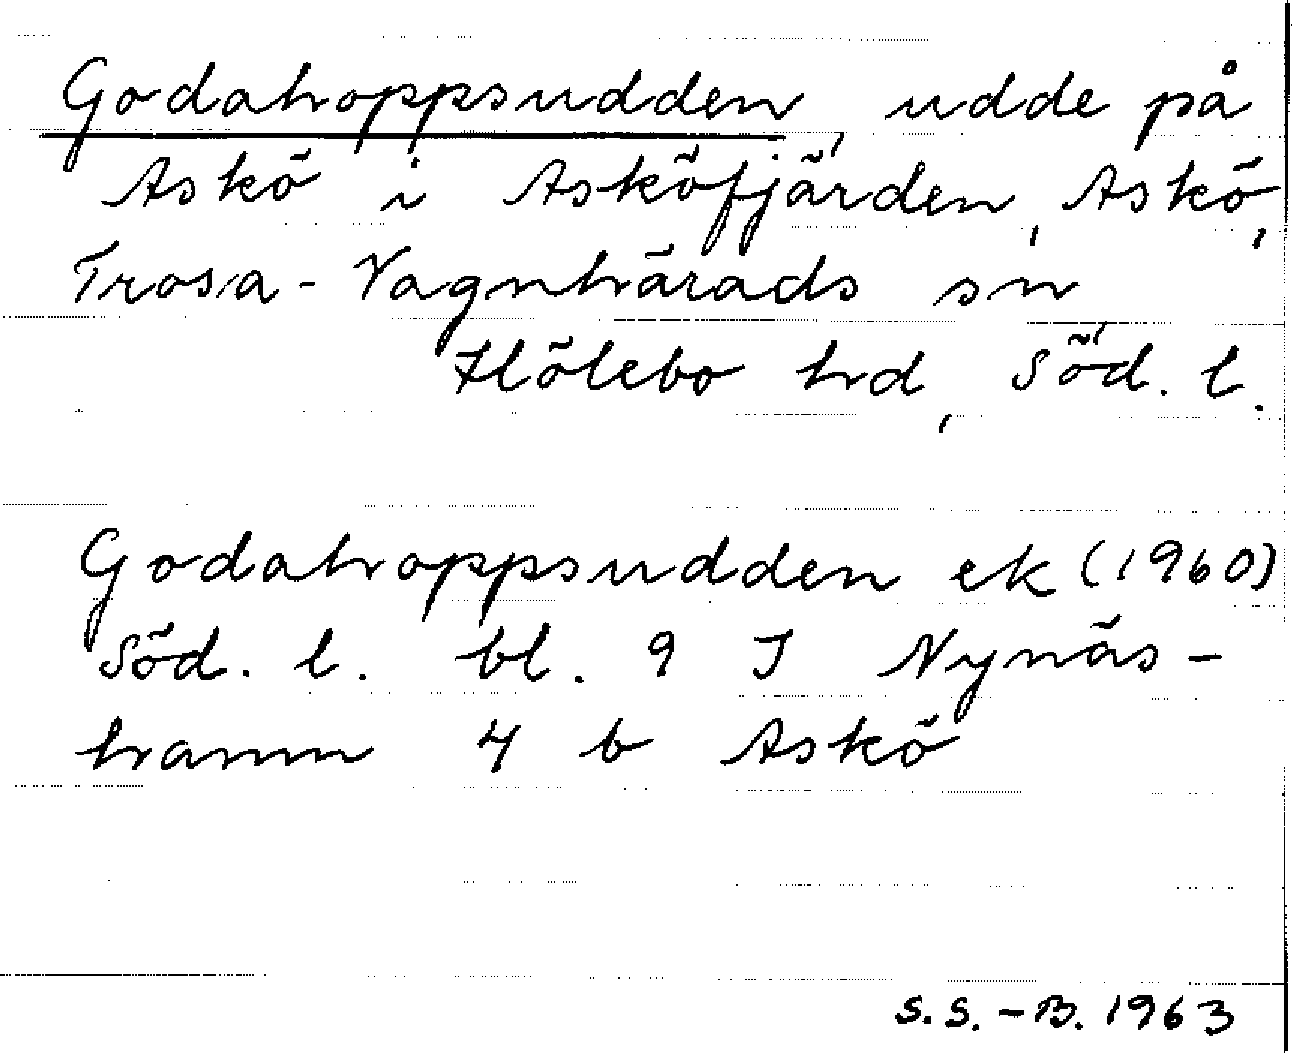 Godahoppsudden, udde på
Askö i Asköfjärden, Askö,
Trosa-Vagnhärads sn
Hölebo hd, Söd. l.
Godahoppsudden ek (1960)
Söd. l. bl. 9 I Nynäs-
hamn 4 b Askö
S. S. - B. 1963